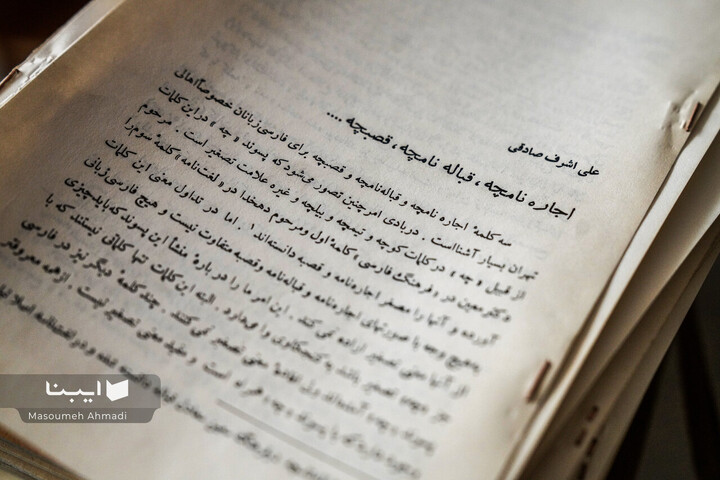 علی اشرف صادقی
اجاره نامچه ، قباله نامچه ، قصبچه ....
سه کلمهٔ اجاره نامچه و قباله‌نامچه و قصبچه برای فارسی‌زبانان خصوصاً اهالی
تهران بسیار آشناست . دربادی امر چنین تصور می‌شود که پسوند « چه » دراین کلمات
از قبیل « چه » در کلمات کوچه و نیمچه و بیلچه و غیره علامت تصغیر است . مرحوم
دکتر معین در « فرهنگ فارسی » کلمهٔ اول ومرحوم دهخدا در « لغت‌نامه » کلمهٔ سوم را
آورده و آنها را مصغر اجاره‌نامه و قصبه دانسته‌اند . اما در تداول معنی این کلمات
به‌هیچ وجه با صورتهای اجاره‌نامه و قباله‌نامه وقصبه متفاوت نیست و هیچ فارسی‌زبانی
از آنها معنی تصغیر اراده نمی کند . این امر ما را در بارهٔ منشأ این پسوند که باید چیزی
تصغیر باشد به کنجکاوی وا می‌دارد . البته این کلمات تنها کلماتی نیستند که با
پسوند « چه » آمده‌اند ولی معنی تصغیر نمی کنند . چند کلمهٔ دیگر نیز در فارسی
است و مفید معنی تصغیر نیست . از همه معروفتر
ایبنا
Masoumeh Ahmadi